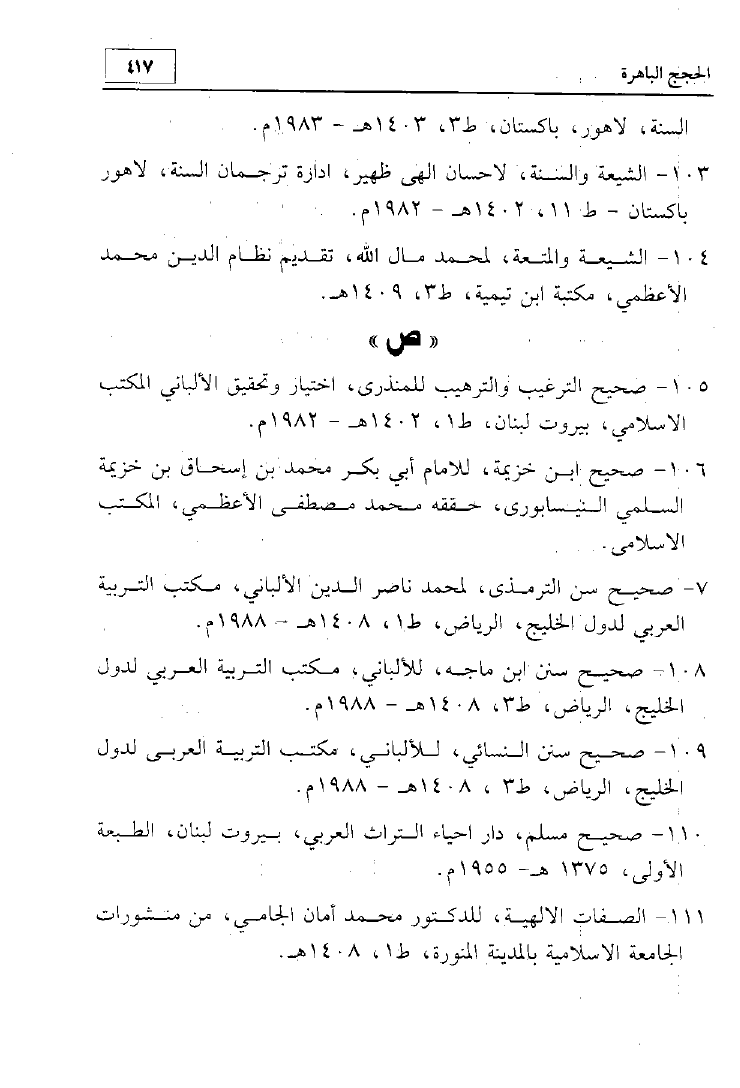 الحجج الباهرة
٤١٧
السنة، لاهور، باكستان، ط٣، ١٤٠٣هـ - ١٩٨٣م.
١٠٣- الشيعة والسنة، لاحسان الهى ظهير، ادارة ترجمان السنة، لاهور
باكستان - ط ١١، ١٤٠٢هـ - ١٩٨٢م.
١٠٤- الشيعة والمتعة، لمحمد مال الله، تقديم نظام الدين محمد
الأعظمي، مكتبة ابن تيمية، ط٣، ١٤٠٩هـ.
« ص »
١٠٥- صحيح الترغيب والترهيب للمنذرى، اختيار وتحقيق الألباني المكتب
الاسلامي، بيروت لبنان، ط١، ١٤٠٢هـ - ١٩٨٢م.
١٠٦- صحيح ابن خزيمة، للامام أبي بكر محمد بن إسحاق بن خزيمة
السلمي النيسابورى، حققه محمد مصطفى الأعظمي، المكتب
الاسلامى.
٧- صحيح سن الترمذى، لمحمد ناصر الدين الألباني، مكتب التربية
العربي لدول الخليج، الرياض، ط١، ١٤٠٨هـ - ١٩٨٨م.
١٠٨- صحيح سنن ابن ماجه، للألباني، مكتب التربية العربي لدول
الخليج، الرياض، ط٣، ١٤٠٨هـ - ١٩٨٨م.
١٠٩- صحيح سنن النسائي، للألباني، مكتب التربية العربى لدول
الخليج، الرياض، ط٣ ، ١٤٠٨هـ - ١٩٨٨م.
١١٠- صحيح مسلم، دار احياء التراث العربي، بيروت لبنان، الطبعة
الأولى، ١٣٧٥ هـ- ١٩٥٥م.
١١١- الصفات الالهية، للدكتور محمد أمان الجامي، من منشورات
الجامعة الاسلامية بالمدينة المنورة، ط١، ١٤٠٨هـ.